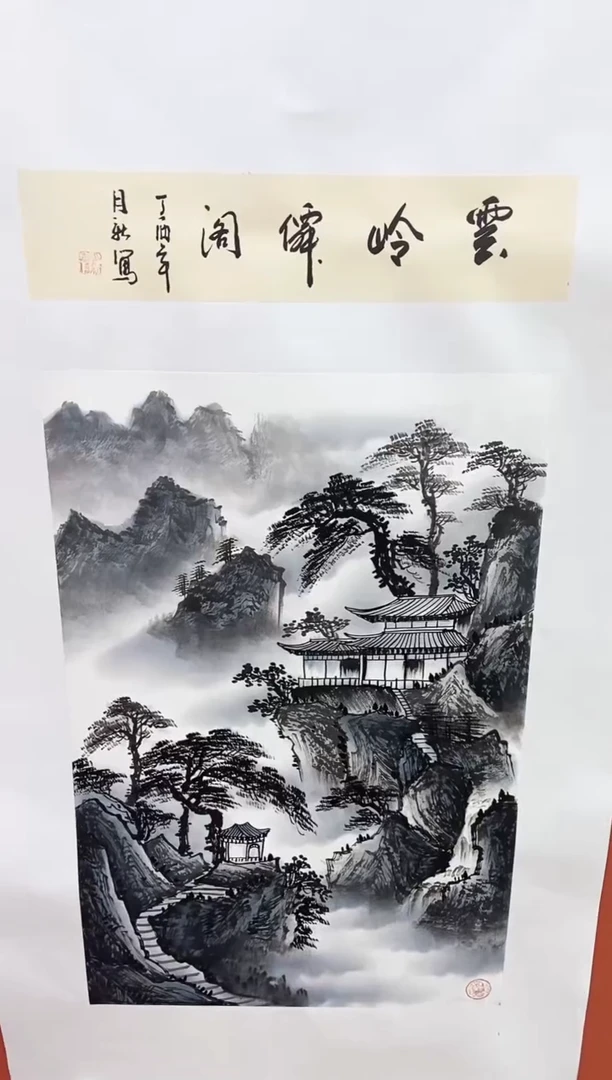 雲岭僊阁
丁酉年
月
寫